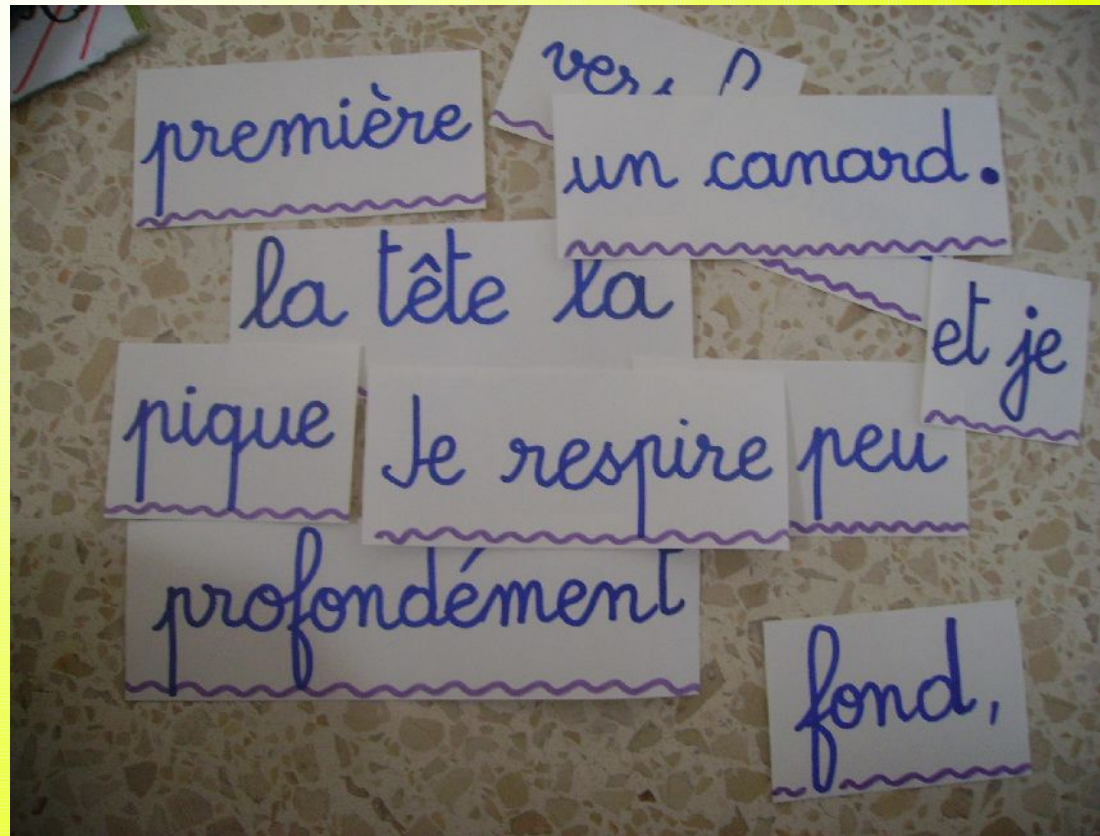 première
un canard.
la tête la
et je
pique
Je respire
peu
profondément
fond,